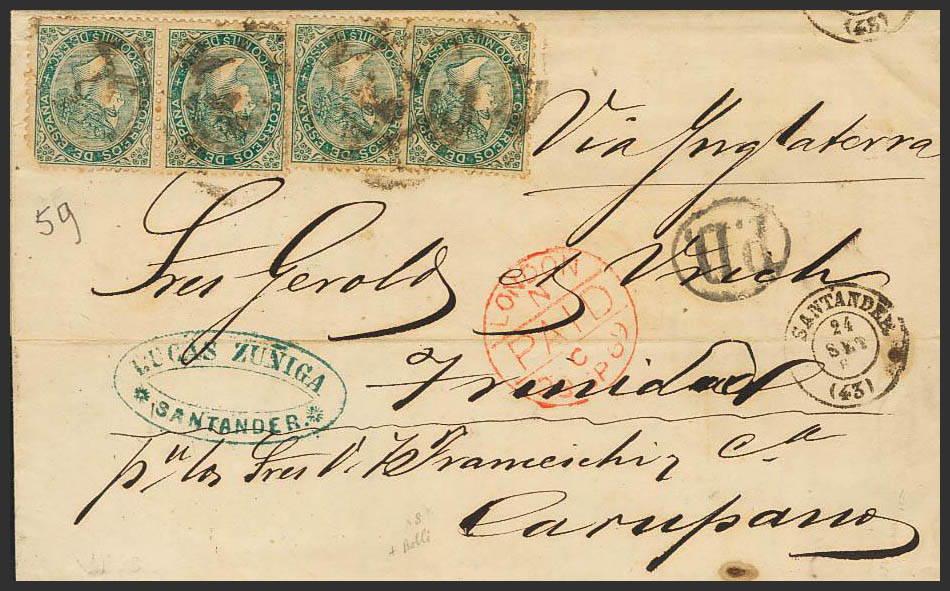 CORREOS DE ESPAÑA
200 MILS DE ESCO
CORREOS DE ESPAÑA
200 MILS DE ESCO
CORREOS DE ESPAÑA
200 MILS DE ESCO
CORREOS DE ESPAÑA
200 MILS DE ESCO
(43)
Via Ynglaterra
59
P.D.
Sres Gerold et Vrich
LONDON
N
PAID
C
SP 69
SANTANDER
24
SET
(43)
LUCAS ZUÑIGA
SANTANDER.
Trinidad
pa los Sres Franceschi y Ca
Carupano